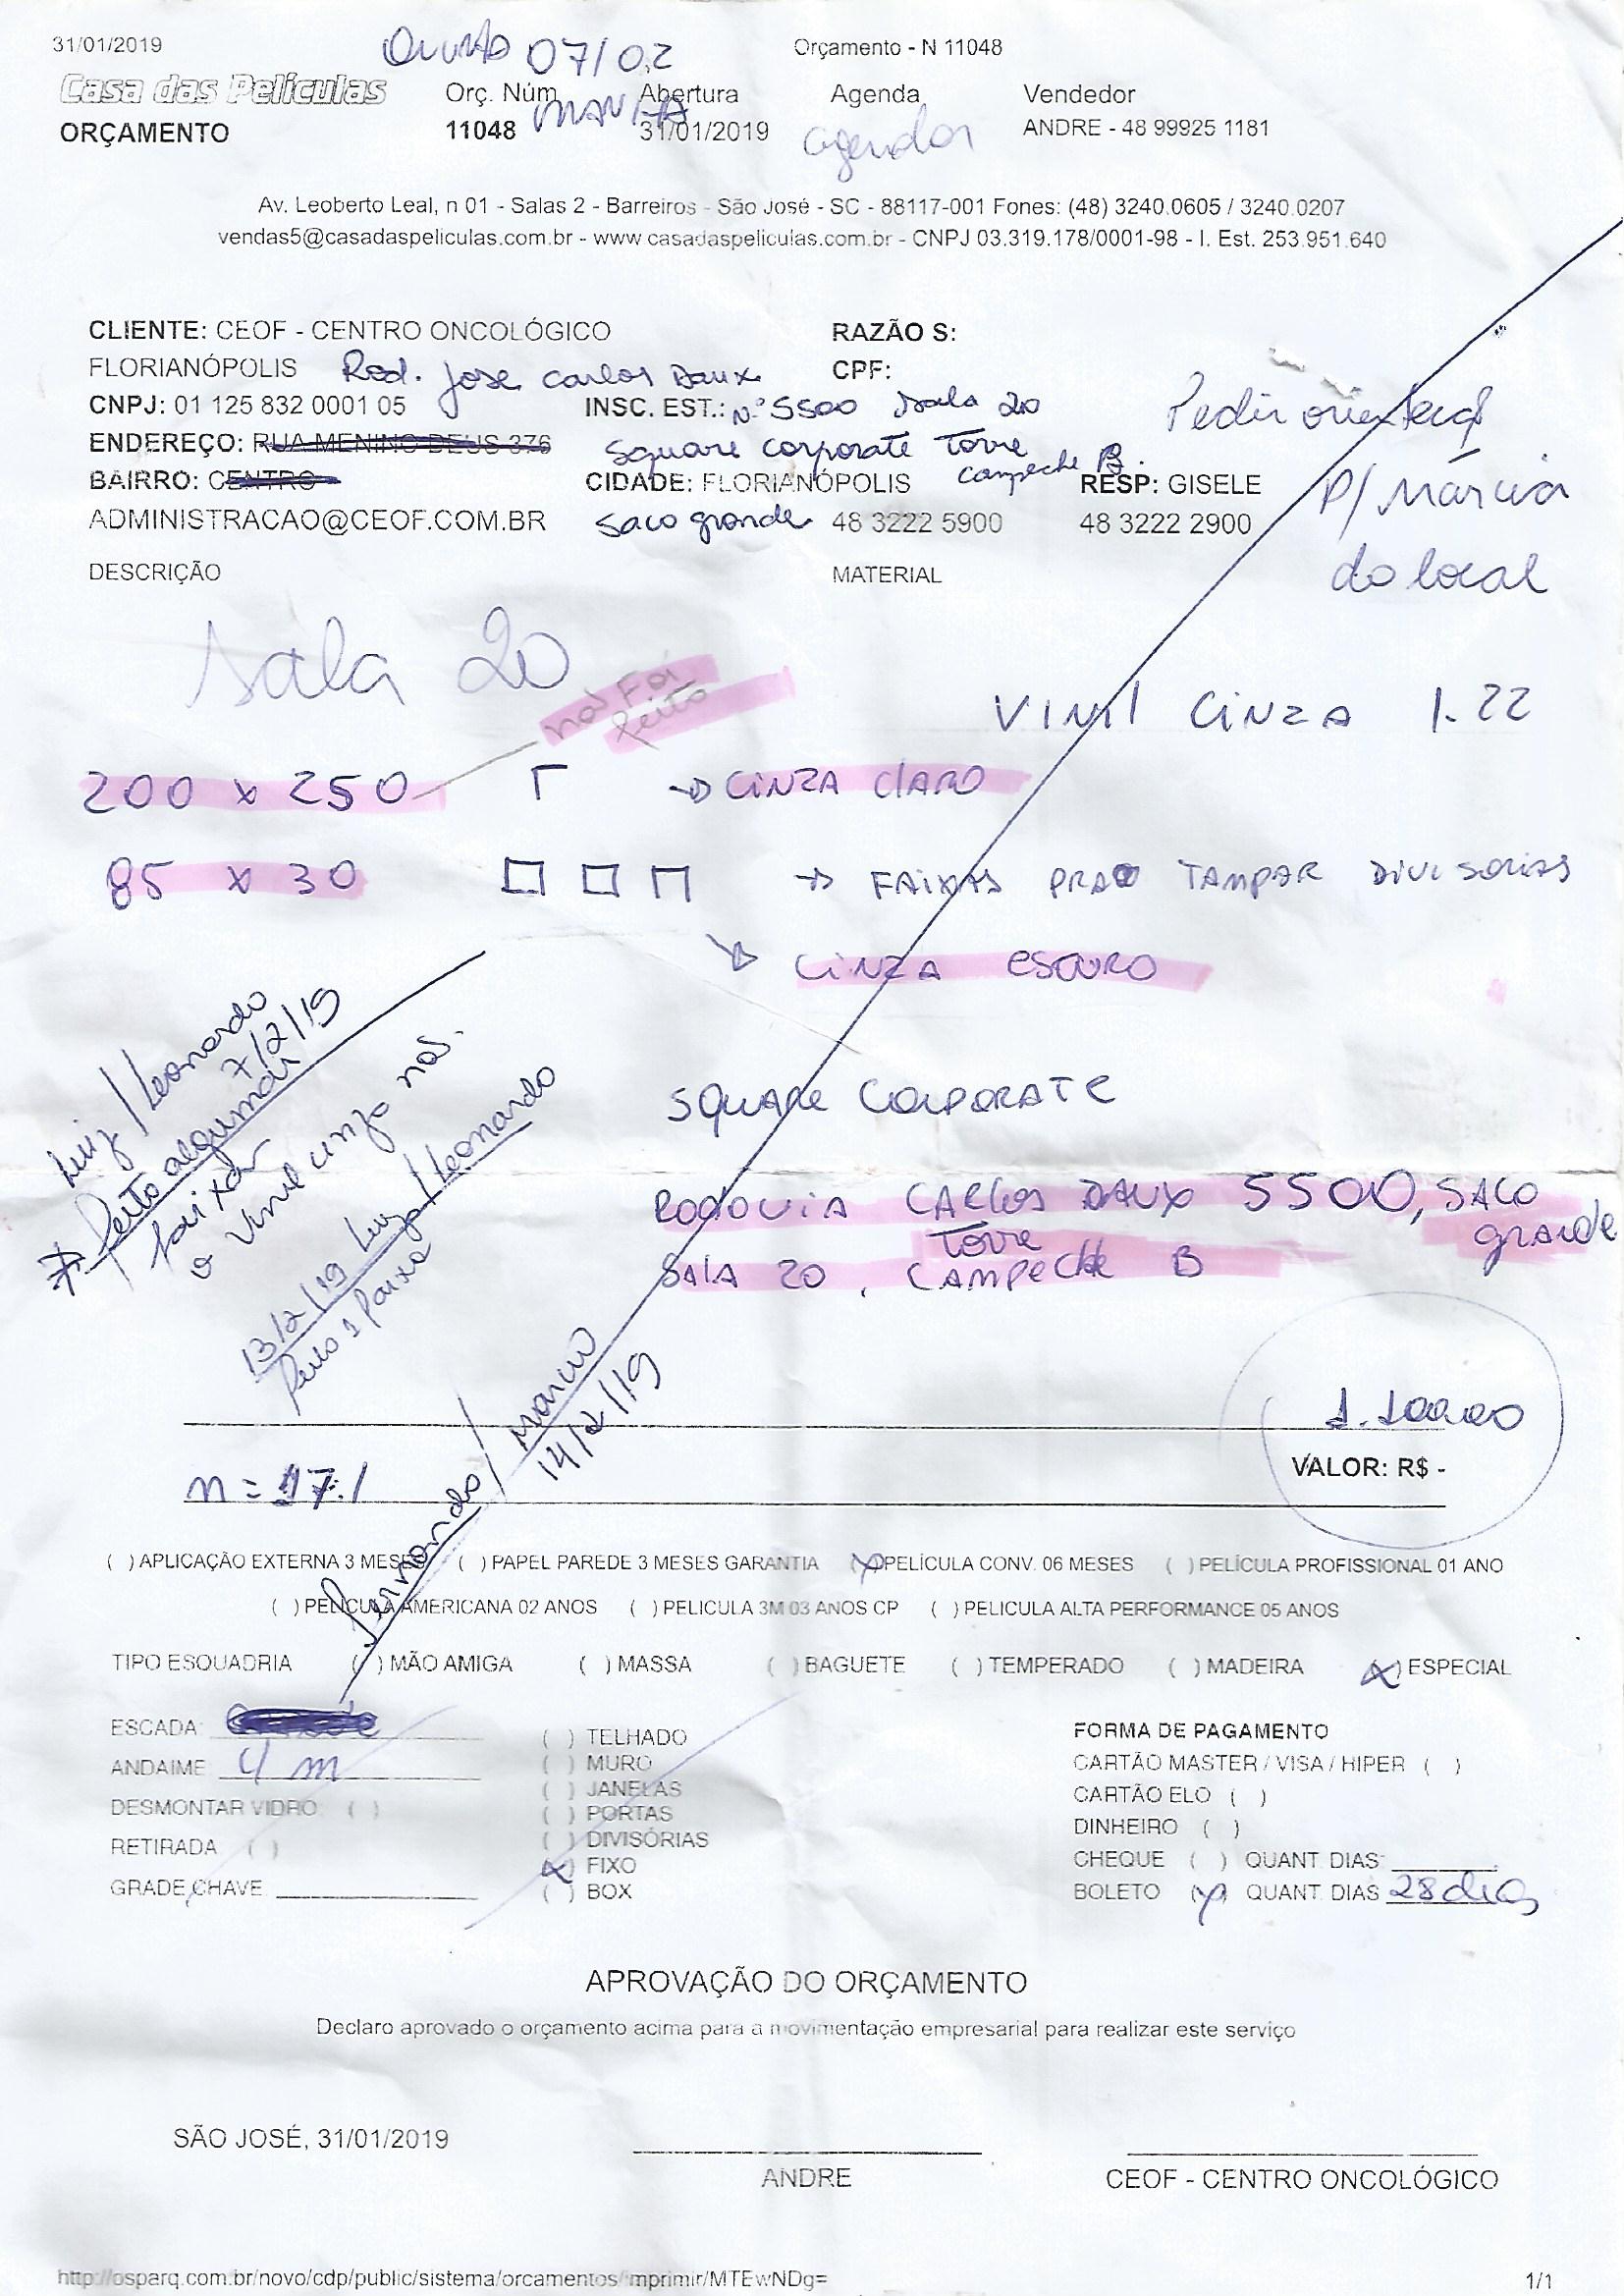 31/01/2019
Orçamento - N 11048
07/02
Casa das Películas
Orç. Núm
Abertura
Agenda
Vendedor
ORÇAMENTO
11048
31/01/2019
agendar
ANDRE - 48 99925 1181
Av. Leoberto Leal, n 01 - Salas 2 - Barreiros - São José - SC - 88117-001 Fones: (48) 3240.0605 / 3240.0207
vendas5@casadaspeliculas.com.br - www casadaspeliculas.com.br - CNPJ 03.319.178/0001-98 - I. Est. 253.951.640
CLIENTE: CEOF - CENTRO ONCOLÓGICO
RAZÃO S:
FLORIANÓPOLIS Rod. Jose Carlos Daux
CPF:
CNPJ: 01 125 832 0001 05
INSC. EST.: Nº 5500 Sala 20
ENDEREÇO: RUA MENINO DEUS 376
Square corporate Torre
Campeche B.
BAIRRO: CENTRO
CIDADE: FLORIANÓPOLIS
RESP: GISELE
ADMINISTRACAO@CEOF.COM.BR
Saco grande
48 3222 5900
48 3222 2900
Pedir
P/ Márcia
do local
DESCRIÇÃO
MATERIAL
Sala 20
não Foi
feito
VINIL CINZA 1.22
200 x 250
→ CINZA CLARO
85 x 30
→ FAIXAS PRA TAMPAR DIVISORIAS
CINZA ESCURO
Luiz / Leonardo
7/2/19
* feito algumas
faixas
o vinil cinza não.
13/2/19 Luiz / Leonardo
SQUARE CORPORATE
RODOVIA CARLOS DAUX 5500, SACO
grande
Torre
SALA 20, CAMPECHE B
Fernando / Marcio
14/2/19
1.100,00
VALOR: R$ -
m = 17.1
( ) APLICAÇÃO EXTERNA 3 MESES ( ) PAPEL PAREDE 3 MESES GARANTIA (x) PELÍCULA CONV. 06 MESES ( ) PELÍCULA PROFISSIONAL 01 ANO
( ) PELICULA AMERICANA 02 ANOS ( ) PELICULA 3M 03 ANOS CP ( ) PELICULA ALTA PERFORMANCE 05 ANOS
TIPO ESQUADRIA ( ) MÃO AMIGA ( ) MASSA ( ) BAGUETE ( ) TEMPERADO ( ) MADEIRA (x) ESPECIAL
ESCADA:
ANDAIME: 4 m
DESMONTAR VIDRO: ( )
RETIRADA ( )
GRADE CHAVE
( ) TELHADO
( ) MURO
( ) JANELAS
( ) PORTAS
( ) DIVISÓRIAS
(x) FIXO
( ) BOX
FORMA DE PAGAMENTO
CARTÃO MASTER / VISA / HIPER ( )
CARTÃO ELO ( )
DINHEIRO ( )
CHEQUE ( ) QUANT. DIAS:
BOLETO (x) QUANT DIAS 28 dias
APROVAÇÃO DO ORÇAMENTO
Declaro aprovado o orçamento acima para a movimentação empresarial para realizar este serviço
SÃO JOSÉ, 31/01/2019
ANDRE
CEOF - CENTRO ONCOLÓGICO
http://osparq.com.br/novo/cdp/public/sistema/orcamentos/imprimir/MTEwNDg=
1/1